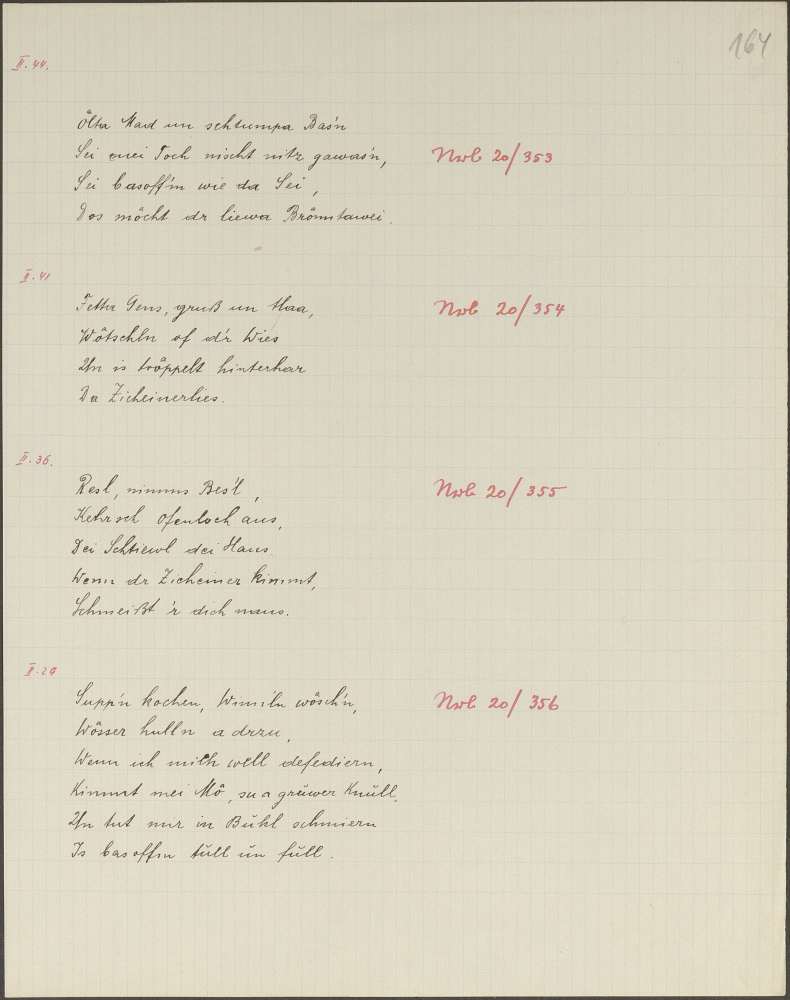 164
II. 44.
Ölta Mad un schtumpa Bas'n
Sei enei Toch nischt nitz gawas'n, Nrb 20/353
Sei basoff'n wie da Sei,
Dos möcht dr liewa Brönntawei.
II. 41
Fetta Gens, gruß un Haa, Nrb 20/354
Wôtschln of d'r Wies
Un is tröppelt hinterhar
Da Zicheinerlies.
II. 36.
Resl, nimms Bes'l, Nrb 20/355
Kehrsch Ofenloch aus,
Dei Schtiewl dei Haus.
Wenn dr Zicheiner kimmt,
Schmeißt 'r dich naus.
II. 29
Supp'n kochen, Wind'ln wösch'n, Nrb 20/356
Wösser hulln a drzu,
Wenn ich mich well defediern,
Kimmt mei Mô, su a grüwer Knüll,
Un tut mir in Bukl schmiern
Is basoffn tüll ün füll.